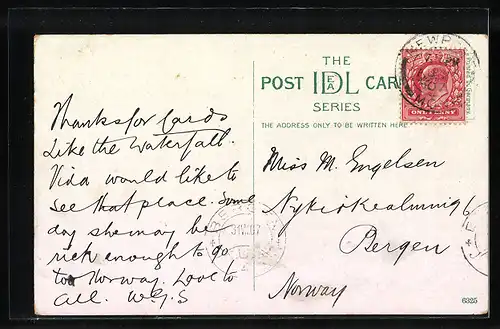 THE
POST IDL CARD
EA
SERIES
THE ADDRESS ONLY TO BE WRITTEN HERE
ONE PENNY
Thanks for Cards
Like the Waterfall.
Vida would like to
see that place. Some
day she may be
rich enough to go
to Norway. Love to
All. W.G.S
Miss M. Engelsen
Bergen
Norway
6325